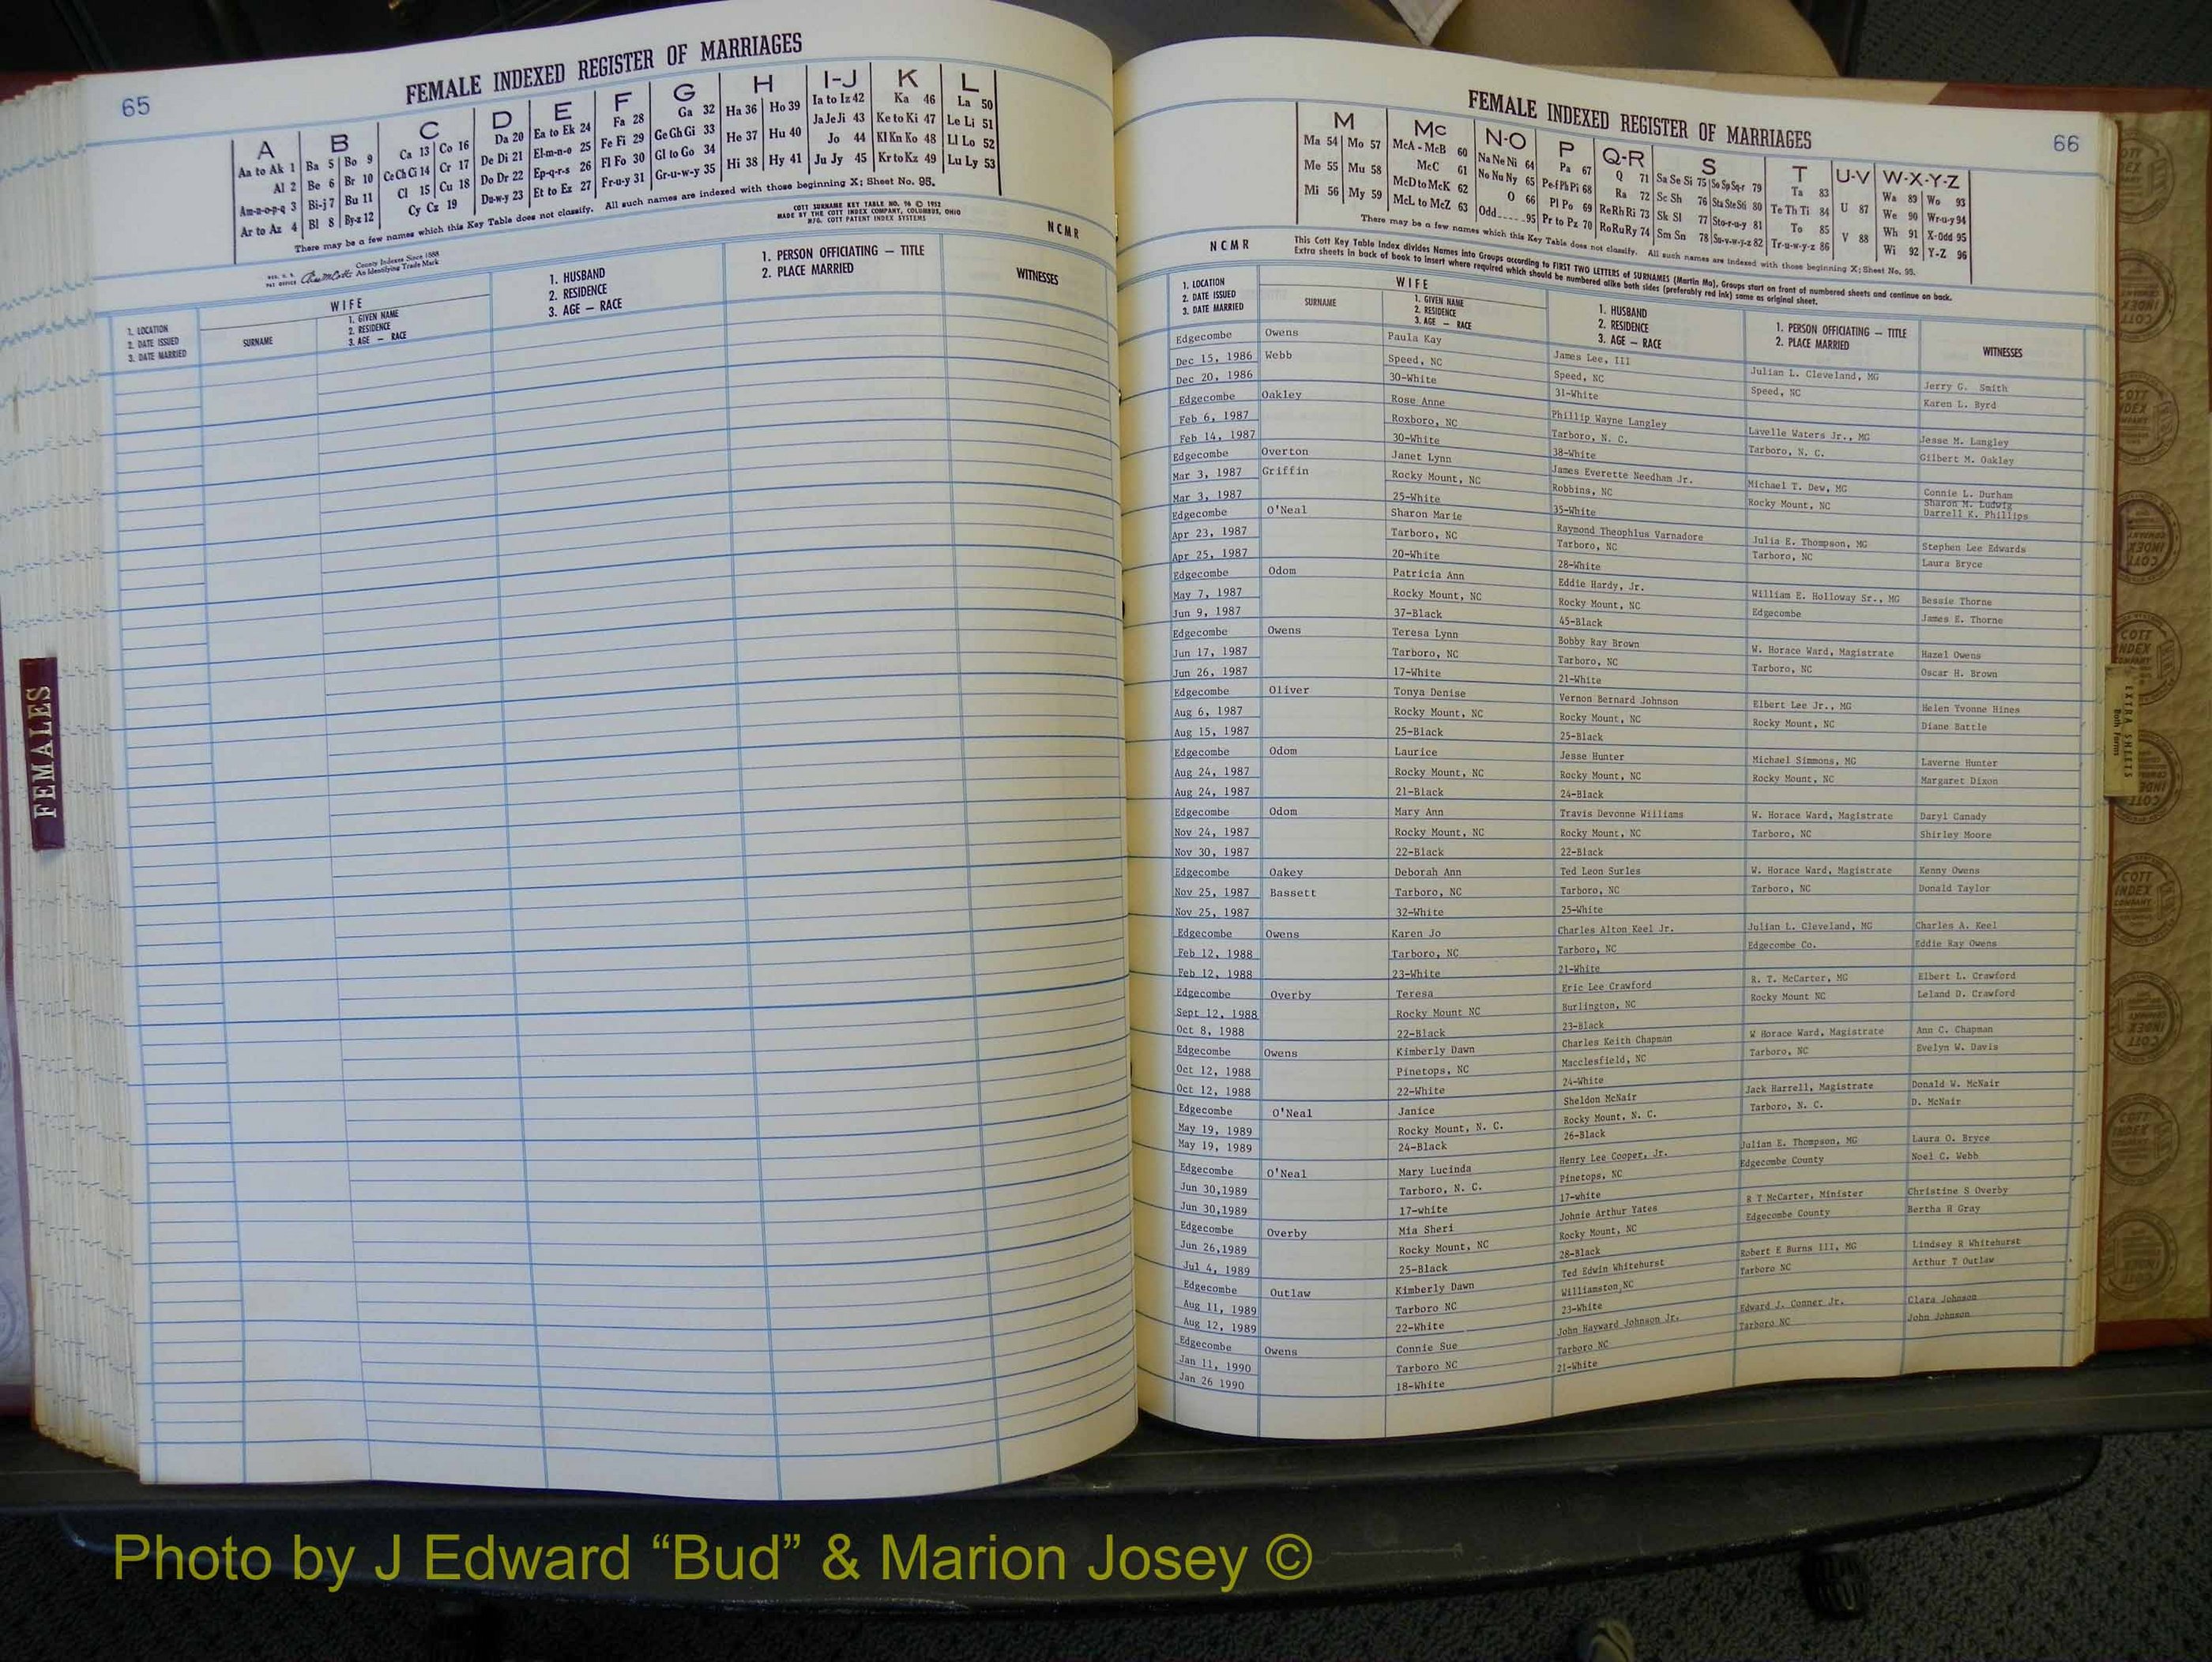 65
FEMALE INDEXED REGISTER OF MARRIAGES
A B C D E F G H I-J K L
Aa to Ak 1 Ba 5 Bo 9 Ca 13 Co 16 Da 20 Ea to Ek 24 Fa 28 Ga 32 Ha 36 Ho 39 Ia to Iz 42 Ka 46 La 50
Al 2 Be 6 Br 10 Ce Ch Ci 14 Cr 17 De Di 21 El-m-n-o 25 Fe Fi 29 Ge Gh Gi 33 He 37 Hu 40 Ja Je Ji 43 Ke to Ki 47 Le Li 51
Am-n-o-p-q 3 Bi-j 7 Bu 11 Cl 15 Cu 18 Do Dr 22 Ep-q-r-s 26 Fl Fo 30 Gl to Go 34 Hi 38 Hy 41 Jo 44 Kl Kn Ko 48 Ll Lo 52
Ar to Az 4 Bl 8 By-z 12 Cy Cz 19 Du-w-y 23 Et to Ez 27 Fr-u-y 31 Gr-u-w-y 35 Ju Jy 45 Kr to Kz 49 Lu Ly 53
There may be a few names which this Key Table does not classify. All such names are indexed with those beginning X; Sheet No. 95.
COTT SURNAME KEY TABLE NO. 96 © 1952
MADE BY THE COTT INDEX COMPANY, COLUMBUS, OHIO
MFG. COTT PATENT INDEX SYSTEMS
NCMR
County Indexes Since 1888
An Identifying Trade Mark
1. LOCATION
2. DATE ISSUED
3. DATE MARRIED
WIFE
SURNAME
1. GIVEN NAME
2. RESIDENCE
3. AGE — RACE
1. HUSBAND
2. RESIDENCE
3. AGE — RACE
1. PERSON OFFICIATING — TITLE
2. PLACE MARRIED
WITNESSES
FEMALES
FEMALE INDEXED REGISTER OF MARRIAGES
66
M Mc N-O P Q-R S T U-V W-X-Y-Z
Ma 54 Mo 57 McA - McB 60 Na Ne Ni 64 Pa 67 Q 71 Sa Se Si 75 So Sp Sq-r 79 Ta 83 U 87 Wa 89 Wo 93
Me 55 Mu 58 McC 61 No Nu Ny 65 Pe-f Ph Pi 68 Ra 72 Sc Sh 76 Sta Ste Sti 80 Te Th Ti 84 V 88 We 90 Wr-u-y 94
Mi 56 My 59 McD to McK 62 O 66 Pl Po 69 Re Rh Ri 73 Sk Sl 77 Sto-r-u-y 81 To 85 Wh 91 X-Odd 95
McL to McZ 63 Odd 95 Pr to Pz 70 Ro Ru Ry 74 Sm Sn 78 Su-v-w-y-z 82 Tr-u-w-y-z 86 Wi 92 Y-Z 96
There may be a few names which this Key Table does not classify. All such names are indexed with those beginning X; Sheet No. 95.
NCMR
This Cott Key Table Index divides Names into Groups according to FIRST TWO LETTERS of SURNAMES (Martin Ma), Groups start on front of numbered sheets and continue on back.
Extra sheets in back of book to insert where required which should be numbered alike both sides (preferably red ink) same as original sheet.
1. LOCATION
2. DATE ISSUED
3. DATE MARRIED
WIFE
SURNAME
1. GIVEN NAME
2. RESIDENCE
3. AGE — RACE
1. HUSBAND
2. RESIDENCE
3. AGE — RACE
1. PERSON OFFICIATING — TITLE
2. PLACE MARRIED
WITNESSES
Edgecombe Owens Paula Kay James Lee, III Julian L. Cleveland, MG Jerry G. Smith
Dec 15, 1986 Webb Speed, NC Speed, NC Speed, NC Karen L. Byrd
Dec 20, 1986 30-White 31-White
Edgecombe Oakley Rose Anne Phillip Wayne Langley Lavelle Waters Jr., MG Jesse M. Langley
Feb 6, 1987 Roxboro, NC Tarboro, N. C. Tarboro, N. C. Gilbert M. Oakley
Feb 14, 1987 30-White 38-White
Edgecombe Overton Janet Lynn James Everette Needham Jr. Michael T. Dew, MG Connie L. Durham
Mar 3, 1987 Griffin Rocky Mount, NC Robbins, NC Rocky Mount, NC Sharon M. Ludwig
Mar 3, 1987 25-White 35-White Darrell K. Phillips
Edgecombe O'Neal Sharon Marie Raymond Theophlus Varnadore Julia E. Thompson, MG Stephen Lee Edwards
Apr 23, 1987 Tarboro, NC Tarboro, NC Tarboro, NC Laura Bryce
Apr 25, 1987 20-White 28-White
Edgecombe Odom Patricia Ann Eddie Hardy, Jr. William E. Holloway Sr., MG Bessie Thorne
May 7, 1987 Rocky Mount, NC Rocky Mount, NC Edgecombe James E. Thorne
Jun 9, 1987 37-Black 45-Black
Edgecombe Owens Teresa Lynn Bobby Ray Brown W. Horace Ward, Magistrate Hazel Owens
Jun 17, 1987 Tarboro, NC Tarboro, NC Tarboro, NC Oscar H. Brown
Jun 26, 1987 17-White 21-White
Edgecombe Oliver Tonya Denise Vernon Bernard Johnson Elbert Lee Jr., MG Helen Yvonne Hines
Aug 6, 1987 Rocky Mount, NC Rocky Mount, NC Rocky Mount, NC Diane Battle
Aug 15, 1987 25-Black 25-Black
Edgecombe Odom Laurice Jesse Hunter Michael Simmons, MG Laverne Hunter
Aug 24, 1987 Rocky Mount, NC Rocky Mount, NC Rocky Mount, NC Margaret Dixon
Aug 24, 1987 21-Black 24-Black
Edgecombe Odom Mary Ann Travis Devonne Williams W. Horace Ward, Magistrate Daryl Canady
Nov 24, 1987 Rocky Mount, NC Rocky Mount, NC Tarboro, NC Shirley Moore
Nov 30, 1987 22-Black 22-Black
Edgecombe Oakey Deborah Ann Ted Leon Surles W. Horace Ward, Magistrate Kenny Owens
Nov 25, 1987 Bassett Tarboro, NC Tarboro, NC Tarboro, NC Donald Taylor
Nov 25, 1987 32-White 25-White
Edgecombe Owens Karen Jo Charles Alton Keel Jr. Julian L. Cleveland, MG Charles A. Keel
Feb 12, 1988 Tarboro, NC Tarboro, NC Edgecombe Co. Eddie Ray Owens
Feb 12, 1988 23-White 21-White
Edgecombe Overby Teresa Eric Lee Crawford R. T. McCarter, MG Elbert L. Crawford
Sept 12, 1988 Rocky Mount NC Burlington, NC Rocky Mount NC Leland D. Crawford
Oct 8, 1988 22-Black 23-Black
Edgecombe Owens Kimberly Dawn Charles Keith Chapman W Horace Ward, Magistrate Ann C. Chapman
Oct 12, 1988 Pinetops, NC Macclesfield, NC Tarboro, NC Evelyn W. Davis
Oct 12, 1988 22-White 24-White
Edgecombe O'Neal Janice Sheldon McNair Jack Harrell, Magistrate Donald W. McNair
May 19, 1989 Rocky Mount, N. C. Rocky Mount, N. C. Tarboro, N. C. D. McNair
May 19, 1989 24-Black 26-Black
Edgecombe O'Neal Mary Lucinda Henry Lee Cooper, Jr. Julian E. Thompson, MG Laura O. Bryce
Jun 30,1989 Tarboro, N. C. Pinetops, NC Edgecombe County Noel C. Webb
Jun 30,1989 17-white 17-white
Edgecombe Overby Mia Sheri Johnie Arthur Yates R T McCarter, Minister Christine S Overby
Jun 26,1989 Rocky Mount, NC Rocky Mount, NC Edgecombe County Bertha H Gray
Jul 4, 1989 25-Black 28-Black
Edgecombe Outlaw Kimberly Dawn Ted Edwin Whitehurst Robert E Burns III, MG Lindsey R Whitehurst
Aug 11, 1989 Tarboro NC Williamston,NC Tarboro NC Arthur T Outlaw
Aug 12, 1989 22-White 23-White
Edgecombe Owens Connie Sue John Hayward Johnson Jr. Edward J. Conner Jr. Clara Johnson
Jan 11, 1990 Tarboro NC Tarboro NC Tarboro NC John Johnson
Jan 26 1990 18-White 21-White
EXTRA SHEETS
Both Forms
COTT INDEX COMPANY
Photo by J Edward “Bud” & Marion Josey ©